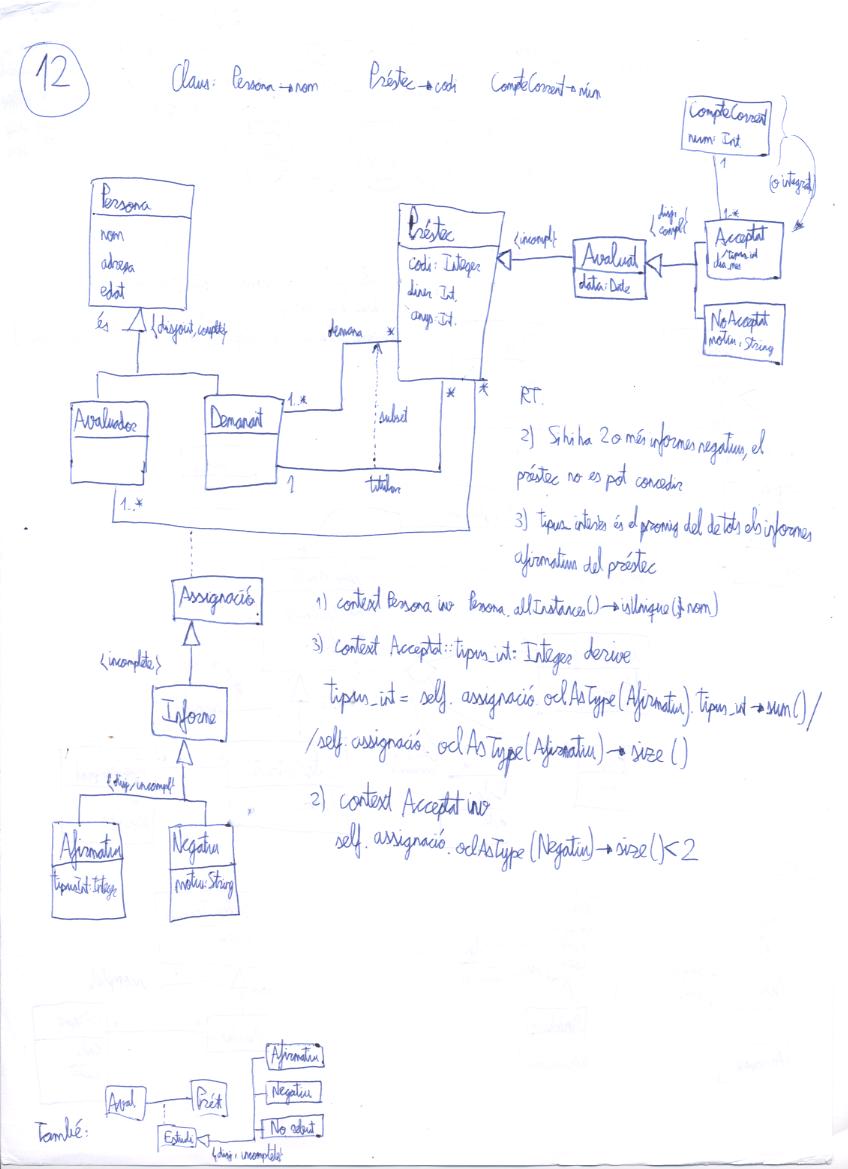 12
Claus: Persona → nom Préstec → codi CompteCorrent → núm
CompteCorrent
num: Int
1
(o integrat)
1..*
Persona
nom
adreça
edat
és
{disjoint, complete}
Préstec
codi: Integer
diner Int.
anys: Int.
{incompl}
Avaluat
data: Date
{disj, compl}
Acceptat
/tipus_int
dia_mes
NoAcceptat
motiu: String
demana
*
1..*
subset
*
*
1
titular
Avaluador
Demanant
1..*
RT.
2) Si hi ha 2 o més informes negatius, el
préstec no es pot concedir
3) tipus_interès és el promig del de tots els informes
afirmatius del préstec
Assignació
{incomplete}
Informe
{disj, incompl}
Afirmatiu
tipusInt: Integer
Negatiu
motiu: String
1) context Persona inv Persona.allInstances() → isUnique(nom)
3) context Acceptat::tipus_int: Integer derive
tipus_int = self.assignació.oclAsType(Afirmatiu).tipus_int → sum() /
/ self.assignació.oclAsType(Afirmatiu) → size()
2) context Acceptat inv
self.assignació.oclAsType(Negatiu) → size() < 2
També:
Aval
Prést
Estudi
{disj, incomplete}
Afirmatiu
Negatiu
No rebut